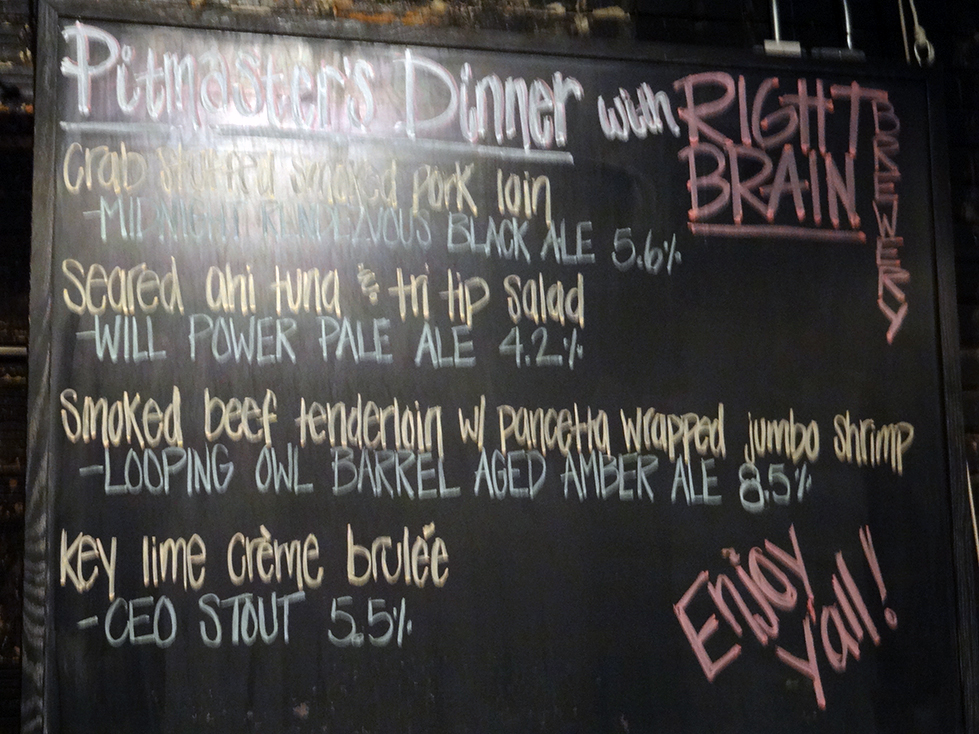 Pitmaster's Dinner with RIGHT
BRAIN
BREWERY
Crab stuffed smoked pork loin
-MIDNIGHT RENDEZVOUS BLACK ALE 5.6%
Seared ahi tuna & tri tip salad
-WILL POWER PALE ALE 4.2%
Smoked beef tenderloin w/ pancetta wrapped jumbo shrimp
-LOOPING OWL BARREL AGED AMBER ALE 8.5%
Key lime crème brulée
-CEO STOUT 5.5%
Enjoy
y'all!